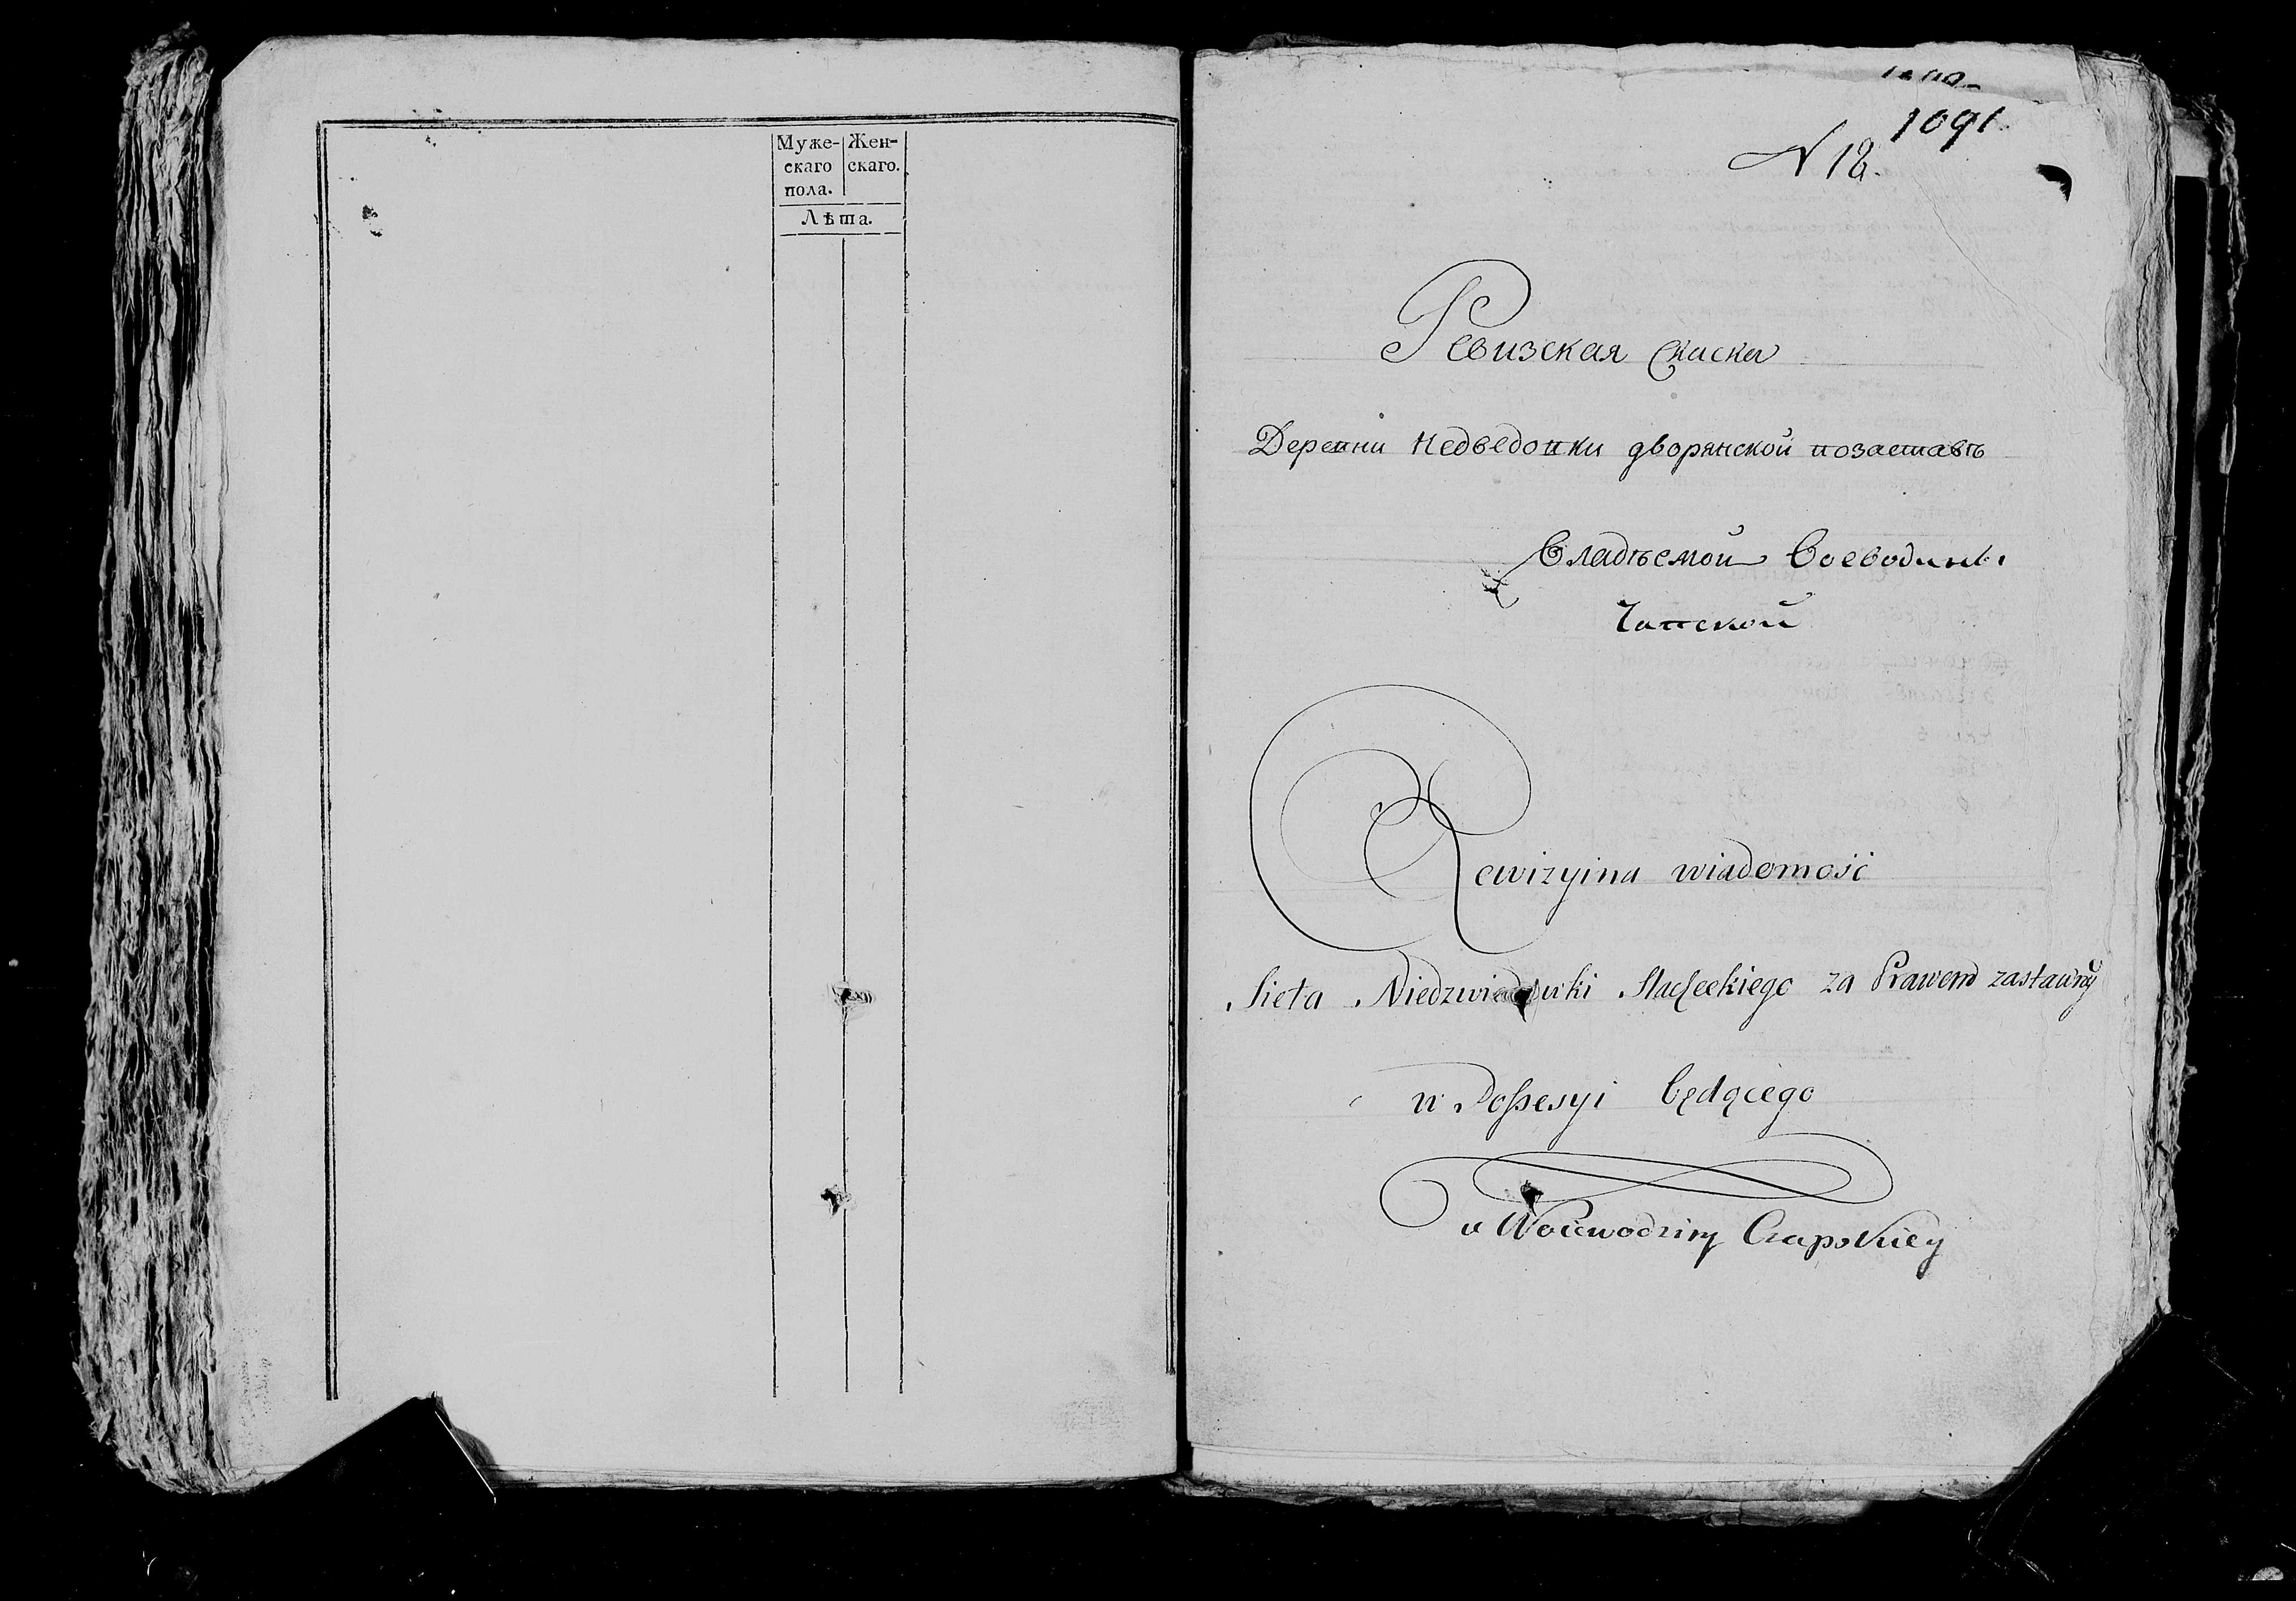 Муже- Жен-
скаго скаго.
пола.
Лѣта.
1091
N 18.
Ревизская скаска
Деревни Недведовки дворянской позаставѣ
Владѣемой Воеводины
Чапской
Rewizyina wiadomość
Sieła Niedzwiedowki Slacheckiego za Prawem zastawny
w Possesyi będącego
u Woiewodziny Czapskiey